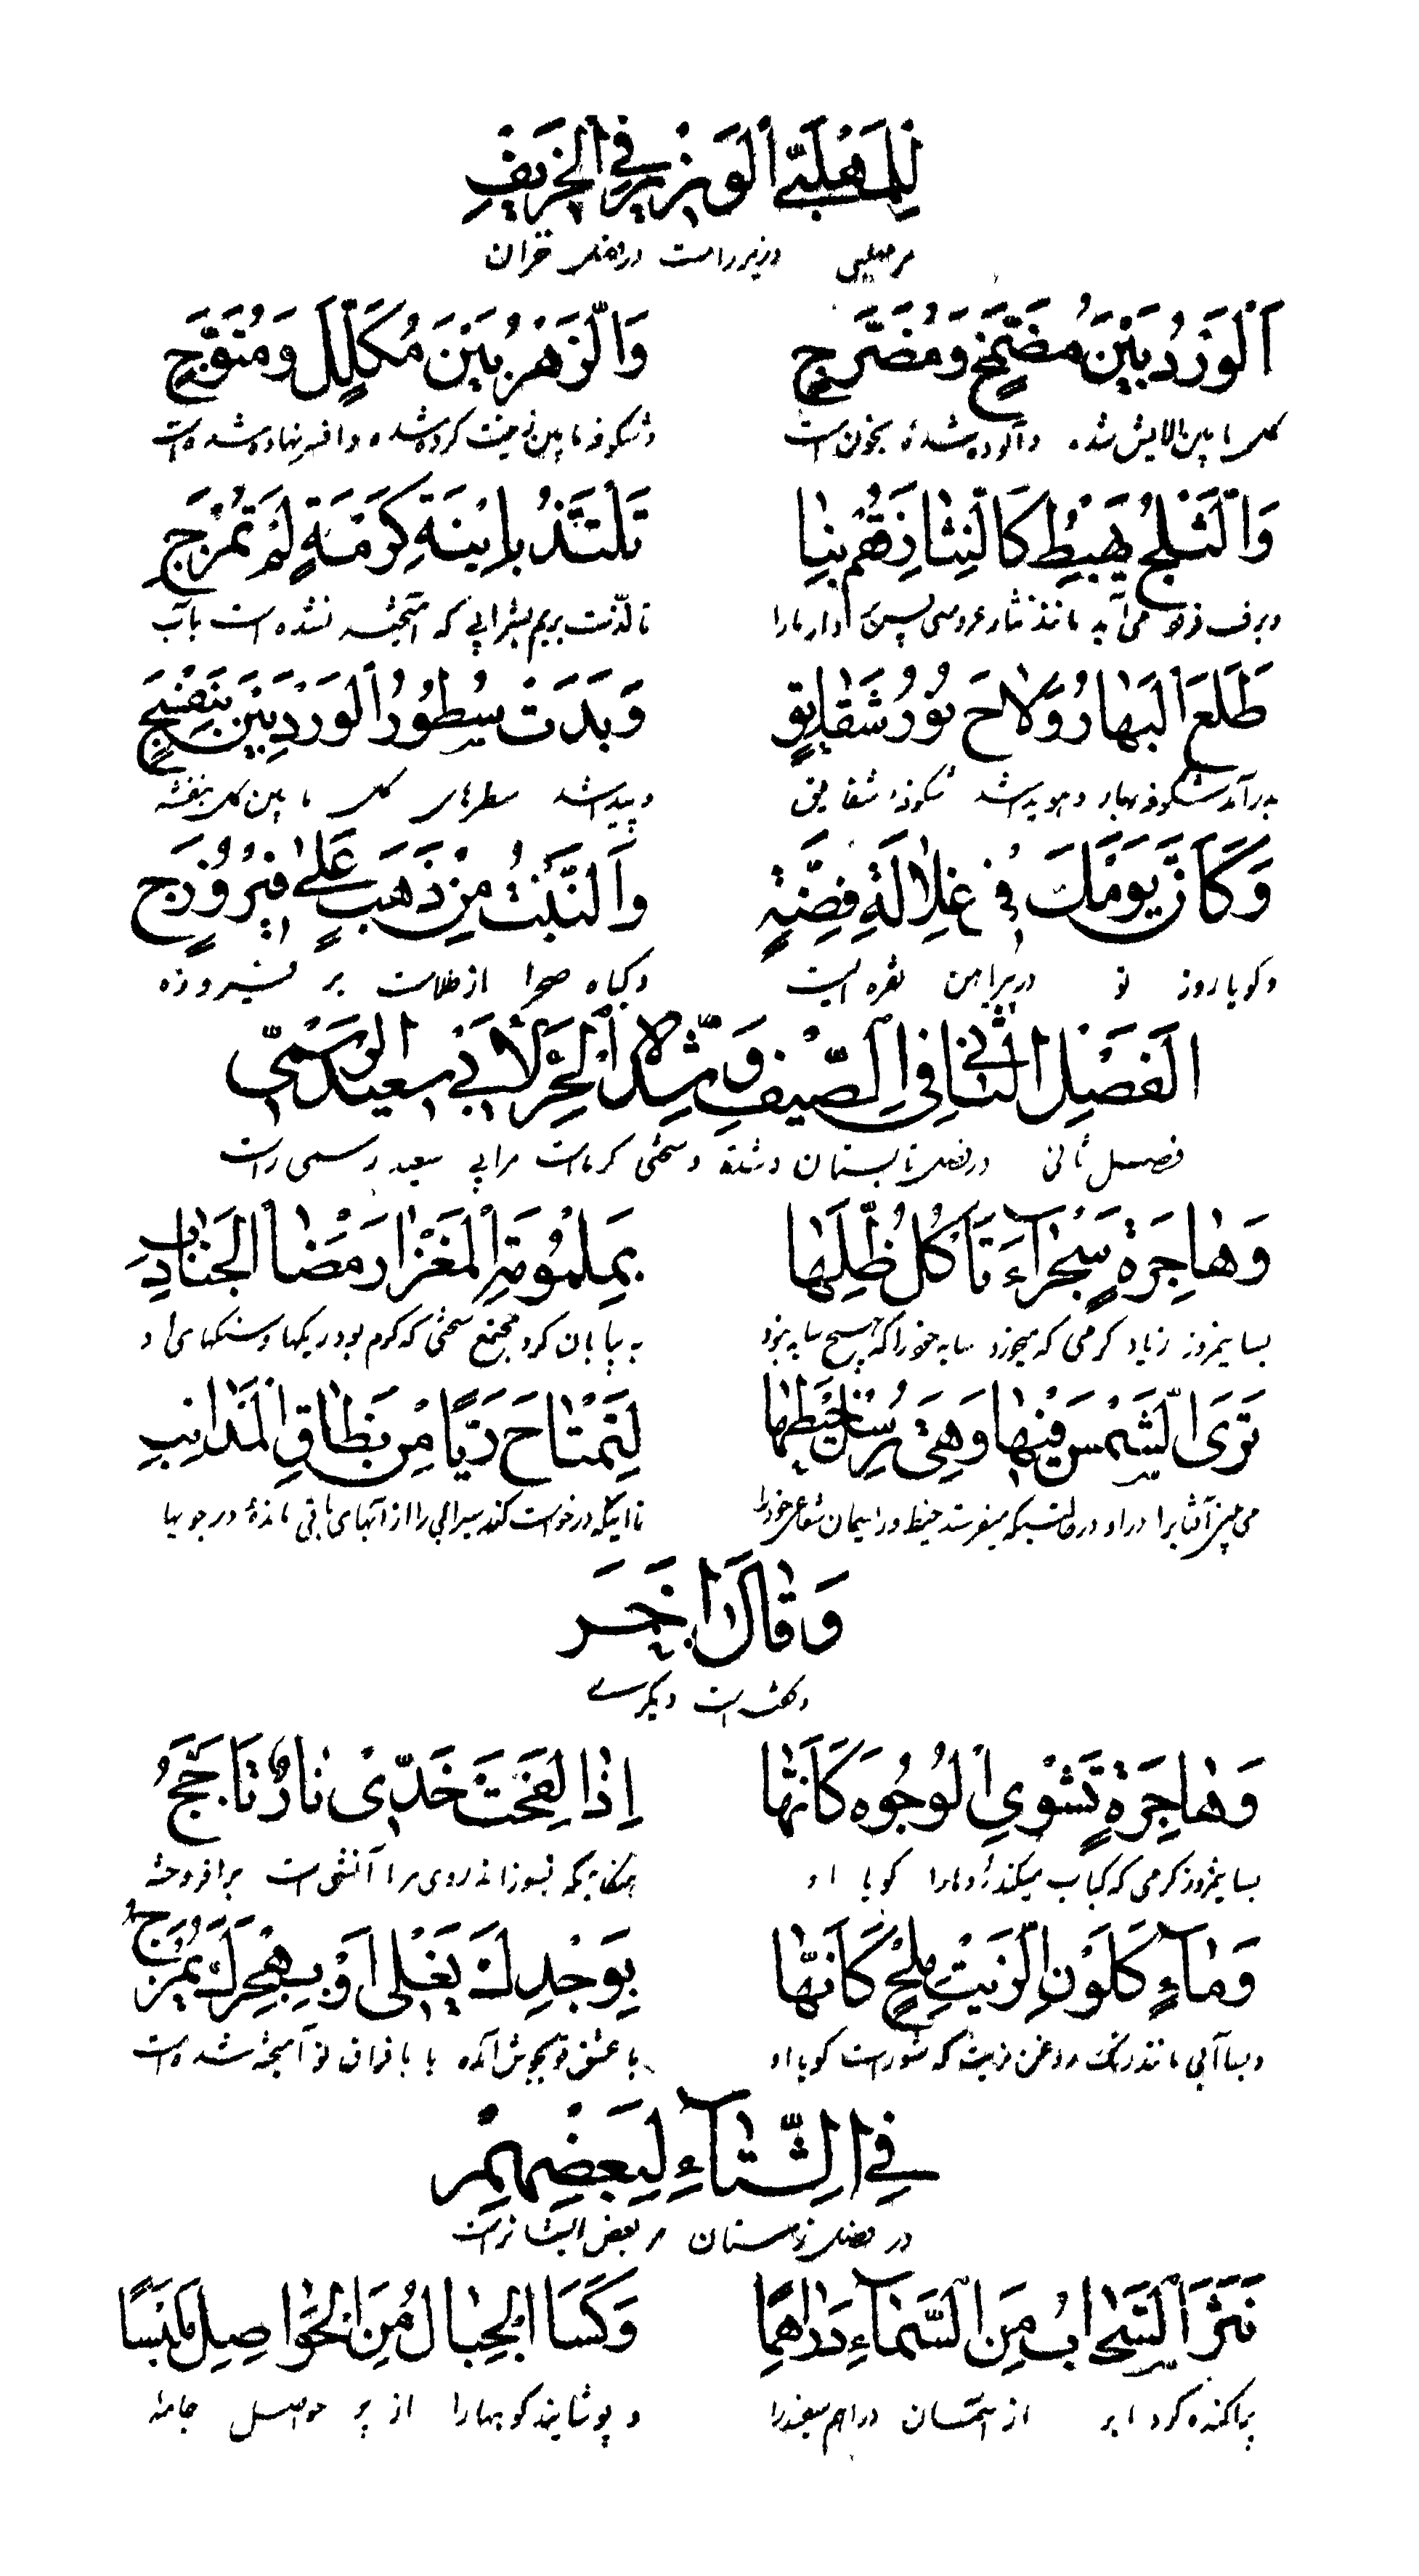 لِلْمُهَلَّبِیِّ الْوَزِیْرِ فِی الْخَرِیْفِ
مر مهلبی وزیر راست در فصل خزان
اَلْوَرْدُ بَیْنَ مُضَمَّخٍ وَمُضَرَّجٍ وَالزَّهْرُ بَیْنَ مُکَلَّلٍ وَمُتَوَّجٍ
کل مابین الایش شده و آلوده شدهٔ بخون است و شکوفه مابین زینت کرده شده و افسر نهاده شده است
وَالثَّلْجُ یَهْبِطُ کَالنِّثَارِ فَقُمْ بِنَا نَلْتَذُّ بِابْنَةِ کَرْمَةٍ لَمْ تُمْزَجِ
و برف فرود می آید مانند نثار عروسی پس وادار مارا تا لذت بریم بشرابی که آمیخته نشده است بآب
طَلَعَ الْبَهَارُ وَلَاحَ نُوْرُ شَقَایِقٍ وَبَدَتْ سُطُوْرُ الْوَرْدِ بَیْنَ بَنَفْسَجٍ
بدرآمد شکوفه بهار و هویدا شد شکوفهٔ شقایق و پیدا شد سطرهای کل مابین کل بنفشه
وَکَاَنَّ یَوْمَکَ فِیْ غِلَالَةِ فِضَّةٍ وَالنَّبْتُ مِنْ ذَهَبٍ عَلٰی فَیْرُوْزَجٍ
و کویا روز تو در پیراهن نقره ایست و کیاه صحرا از طلاست بر فیروزه
الْفَصْلُ الثَّانِی فِی الصَّیْفِ وَشِدَّةِ الْحَرِّ لِاَبِیْ سَعِیْدِ الرُّسْتَمِیِّ
فصل ثانی در فصل تابستان و شدة و سختی کرماست مر ابی سعید رستمی راست
وَهَاجِرَةٍ سَجْرَآءَ تَاْکُلُ ظِلَّهَا بِمَلْمُوْمَةِ الْمَعْزَاءِ رَمْضَا الْجَنَادِبِ
بسا نیمروز زیاد کرمی که میخورد سایه خود را که هیچ سایه نبود به بیابان کرد مجتمع سختی که کرم بود ریکها و سنکهای او
تَرَی الشَّمْسَ فِیْهَا وَهِیَ تُرْسِلُ خَیْطَهَا لِتَمْتَاحَ رَیًّا مِنْ نِطَافِ الْمَذَانِبِ
می بینی آفتابرا در او در حالتیکه میفرستد خیط و ریسمان شعاعی خود را تا اینکه درخواست کند سیرابی را از آبهای باقی ماندهٔ در جویها
وَقَالَ اٰخَرُ
و کفته است دیکرے
وَهَاجِرَةٍ تَشْوِی الْوُجُوْهَ کَاَنَّهَا اِذَا لَفَحَتْ خَدَّیَّ نَارٌ تَاَجَّجُ
بسا نیمروز کرمی که کباب میکند رُوها را کویا او هنکامیکه بسوزاند روی مرا آتشی است برافروخته
وَمَآءٍ کَلَوْنِ الزَّیْتِ مِلْحٍ کَاَنَّهَا بِوَجْدِکَ یَغْلٰی اَوْ بِهَجْرِکَ یُمْزَجُ
و بسا آبی مانند رنک روغن زیت که شور است کویا او با عشق تو بجوش آمده یا با فراق تو آمیخته شده است
فِی الشِّتَآءِ لِبَعْضِهِمْ
در فصل زمستان مر بعض ایشانراست
نَثَرَ السَّحَابُ مِنَ السَّمَآءِ دَرَاهِمًا وَکَسَا الْجِبَالَ مِنَ الْحَوَاصِلِ مَلْبَسًا
پراکنده کرد ابر از آسمان دراهم سفید را و پوشانید کوهها را از پر حواصل جامه